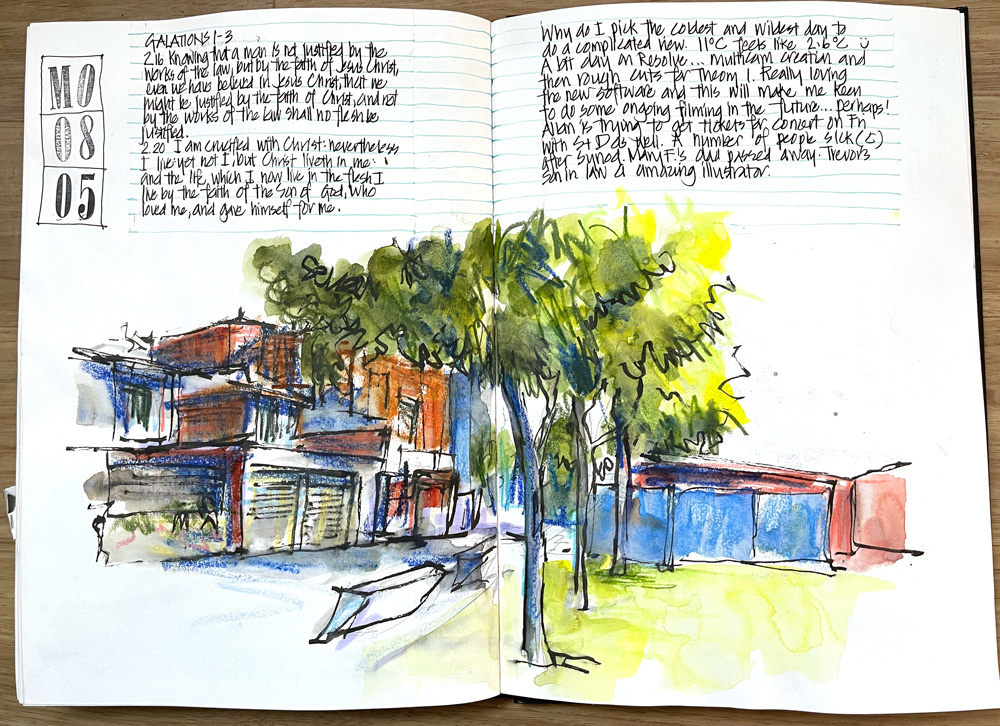 MO
08
05
GALATIONS 1-3
2.16 Knowing that a man is not justified by the
works of the law, but by the faith of Jesus Christ,
even we have believed in Jesus Christ, that we
might be justified by the faith of Christ, and not
by the works of the law shall no flesh be
justified.
2.20 I am crucified with Christ: nevertheless
I live: yet not I, but Christ liveth in me:
and the life, which I now live in the flesh I
live by the faith of the Son of God, who
loved me, and gave himself for me.
Why do I pick the coldest and wildest day to
do a complicated view. 11°C feels like 2.6°C
A bit day on Resolve... multicam creation and
then rough cuts for Theory 1. Really loving
the new software and this will make me keen
to do some ongoing filming in the future... perhaps!
Alan is trying to get tickets for concert on Fri
with St D's as well. A number of people sick (5)
after Synod. Mary F.'s dad passed away. Trevor's
son in law a amazing illustrator.